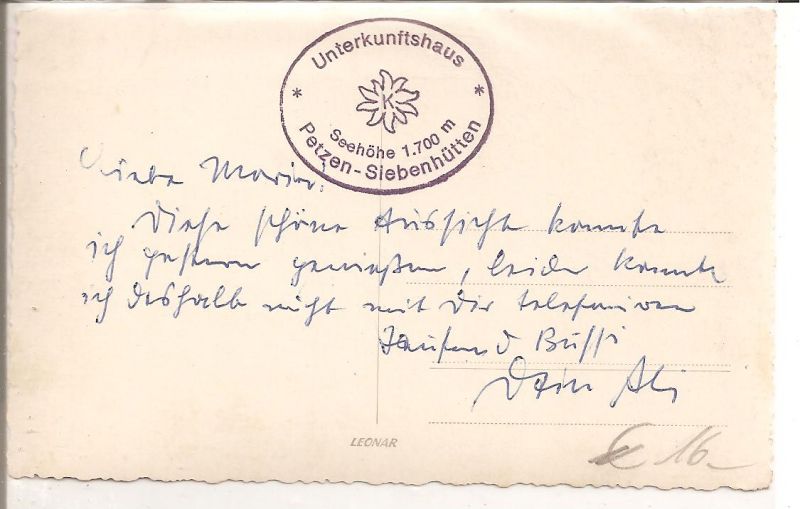 Unterkunftshaus
* *
K
Seehöhe 1.700 m
Petzen-Siebenhütten
Liebe
Diese schöne Aussicht konnte
ich gestern genießen, leider konnte
ich deshalb nicht mit Dir telefonieren
Tausend Bussi
Dein
LEONAR
16.-